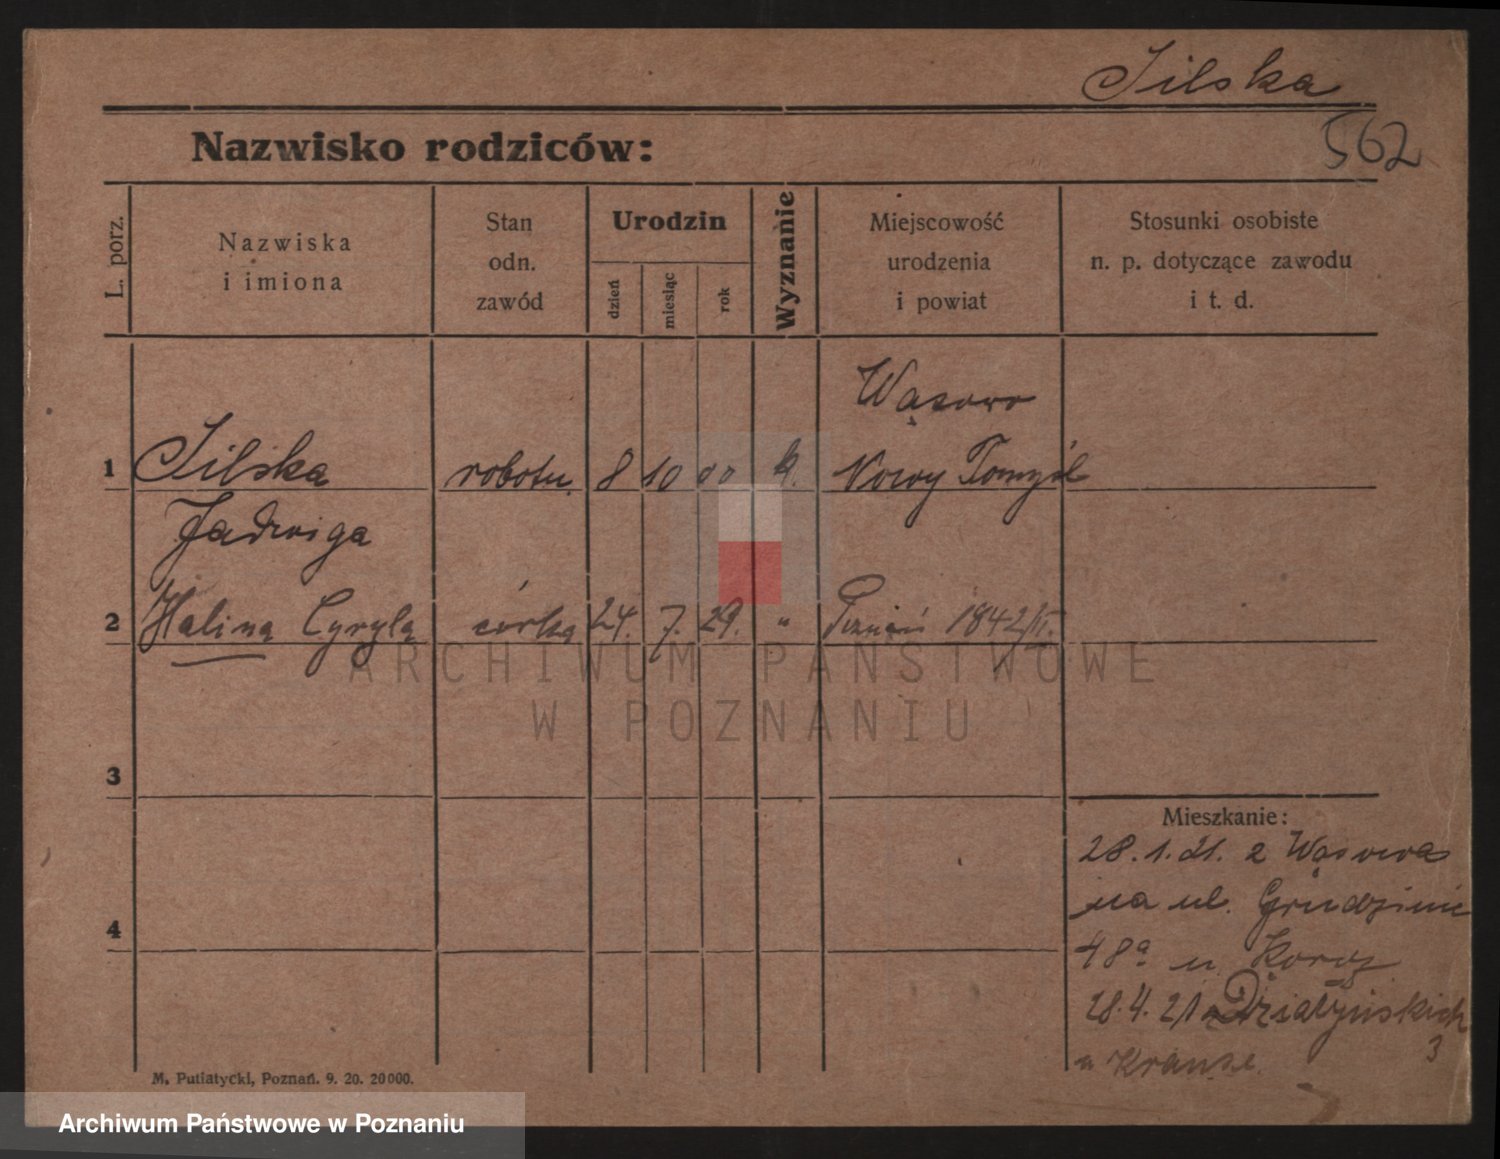 Jilska
562
Nazwisko rodziców:
L. porz.
Nazwiska
i imiona
Stan
odn.
zawód
Urodzin
dzień
miesiąc
rok
Wyznanie
Miejscowość
urodzenia
i powiat
Stosunki osobiste
n. p. dotyczące zawodu
i t. d.
Wąsowo
1 Jilska robotn. 8 10 00 k. Nowy Tomyśl
Jadwiga
2 Halina Cyryla córka 24. 7. 29. " Poznań 1842/II.
ARCHIWUM PAŃSTWOWE
W POZNANIU
3
Mieszkanie:
28.1.21. z Wąsowa
na ul. Grudzieniec
4 48a u
28.4.21 Działyńskich
3
u Krause
M. Putiatycki, Poznań. 9. 20. 20000.
Archiwum Państwowe w Poznaniu